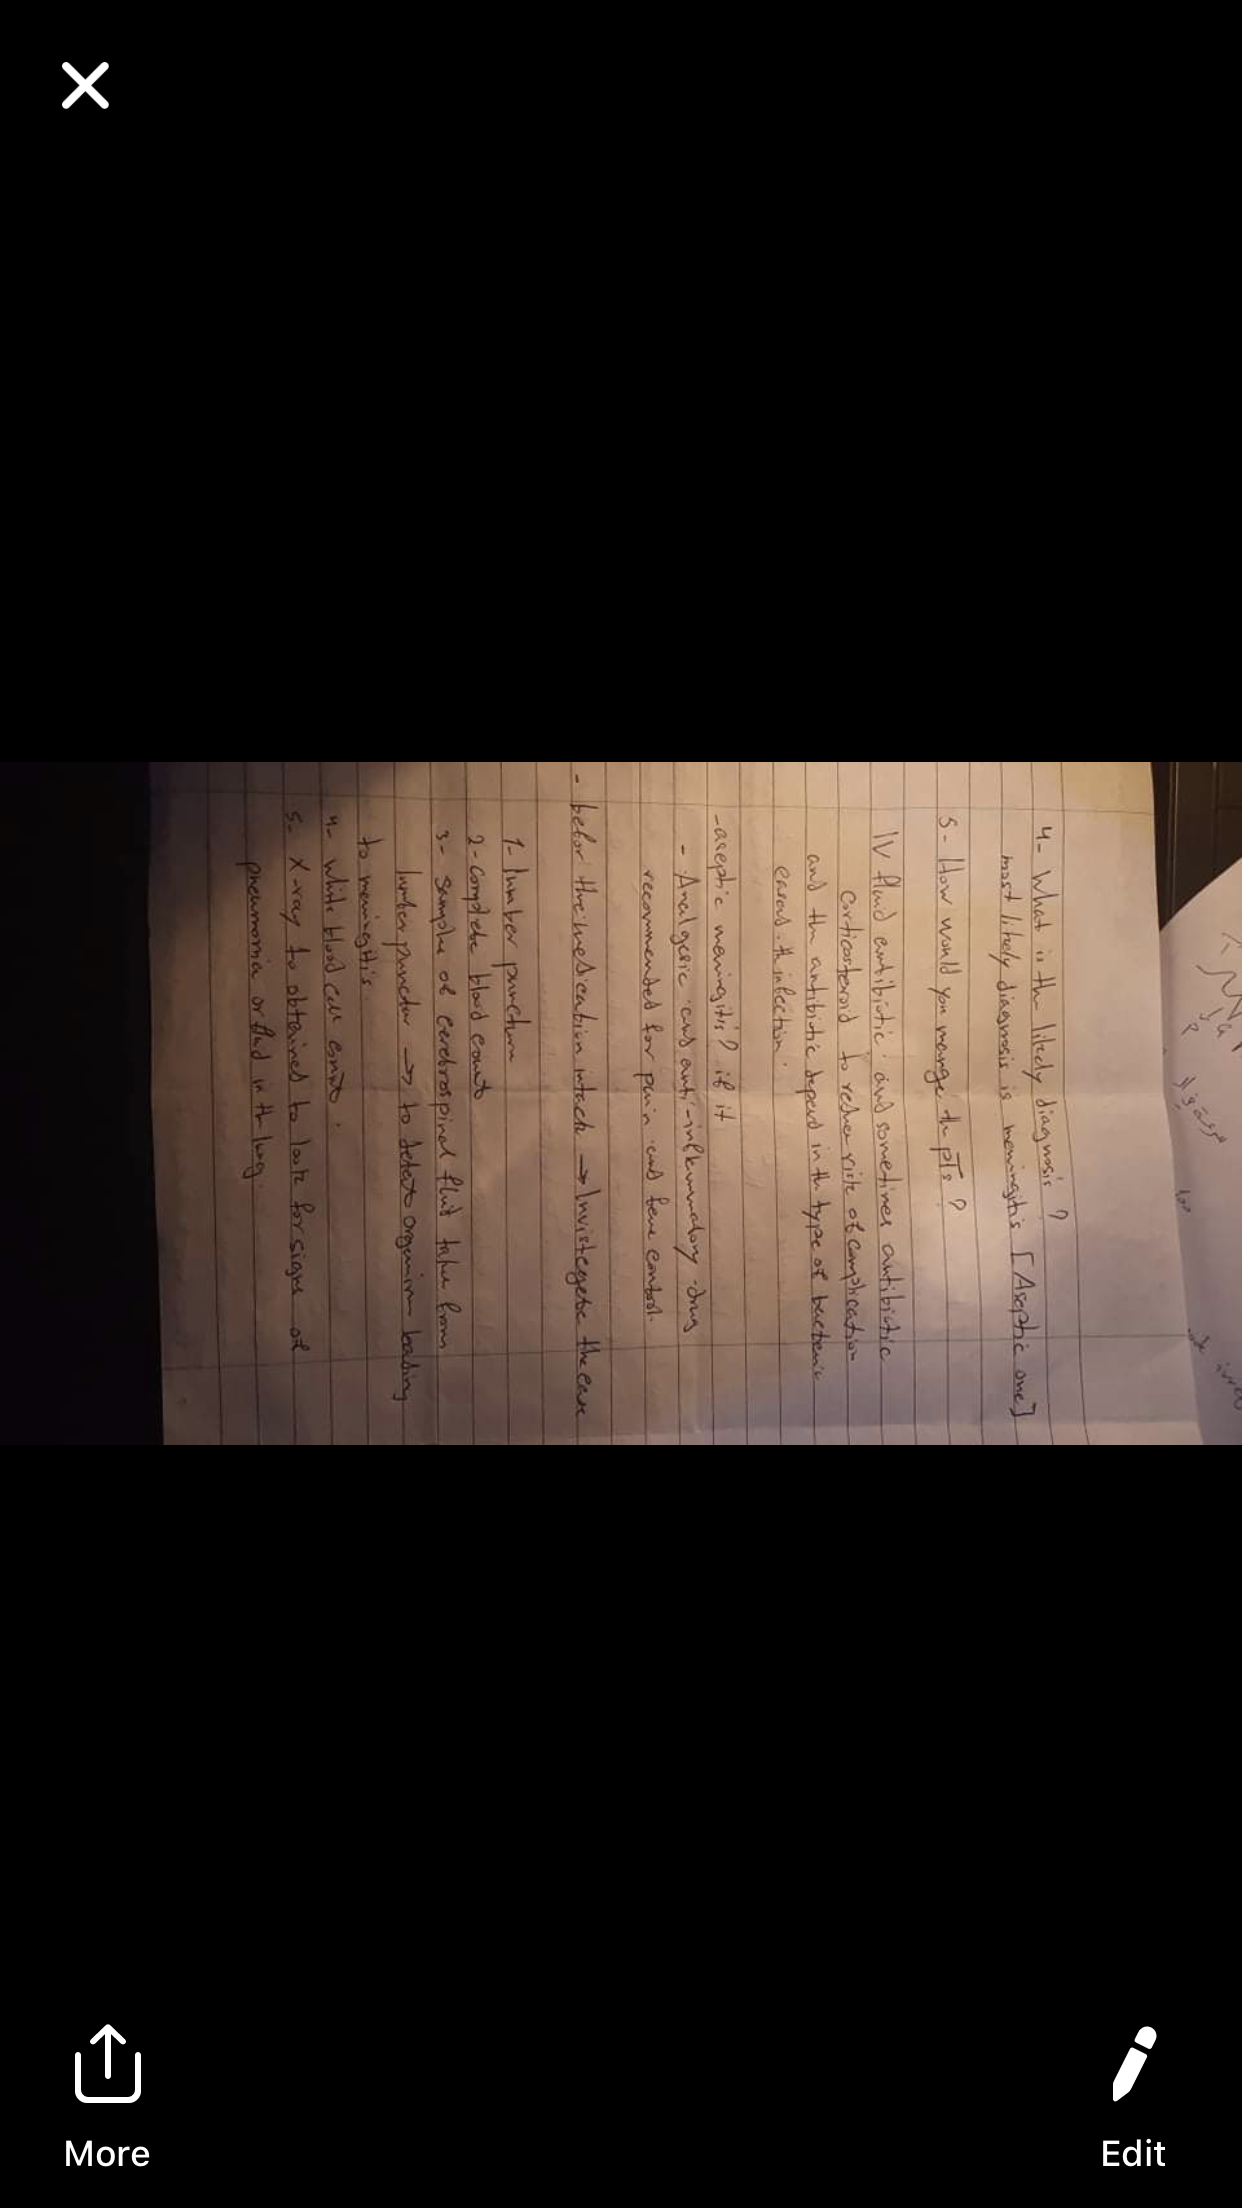 4- What is the likely diagnosis ?
most likely diagnosis is meningitis [Aseptic one]
5- How would you manage the pts ?
IV fluid antibiotic and sometimes antibiotic
corticosteroid to reduce risk of complication
and the antibiotic depend in the type of bacteria
the infection.
-aseptic meningitis? if it
- Analgesic and anti-inflammatory drug
recommended for pain and control.
- befor the medication → the case
1- lumber puncture
2- complete blood count
3- sample of cerebrospinal fluid taken from
lumber → to detect organism
to meningitis
4- white blood cell count.
5- X-ray to obtained to look for signs of
pneumonia or fluid in the lung.
More
Edit